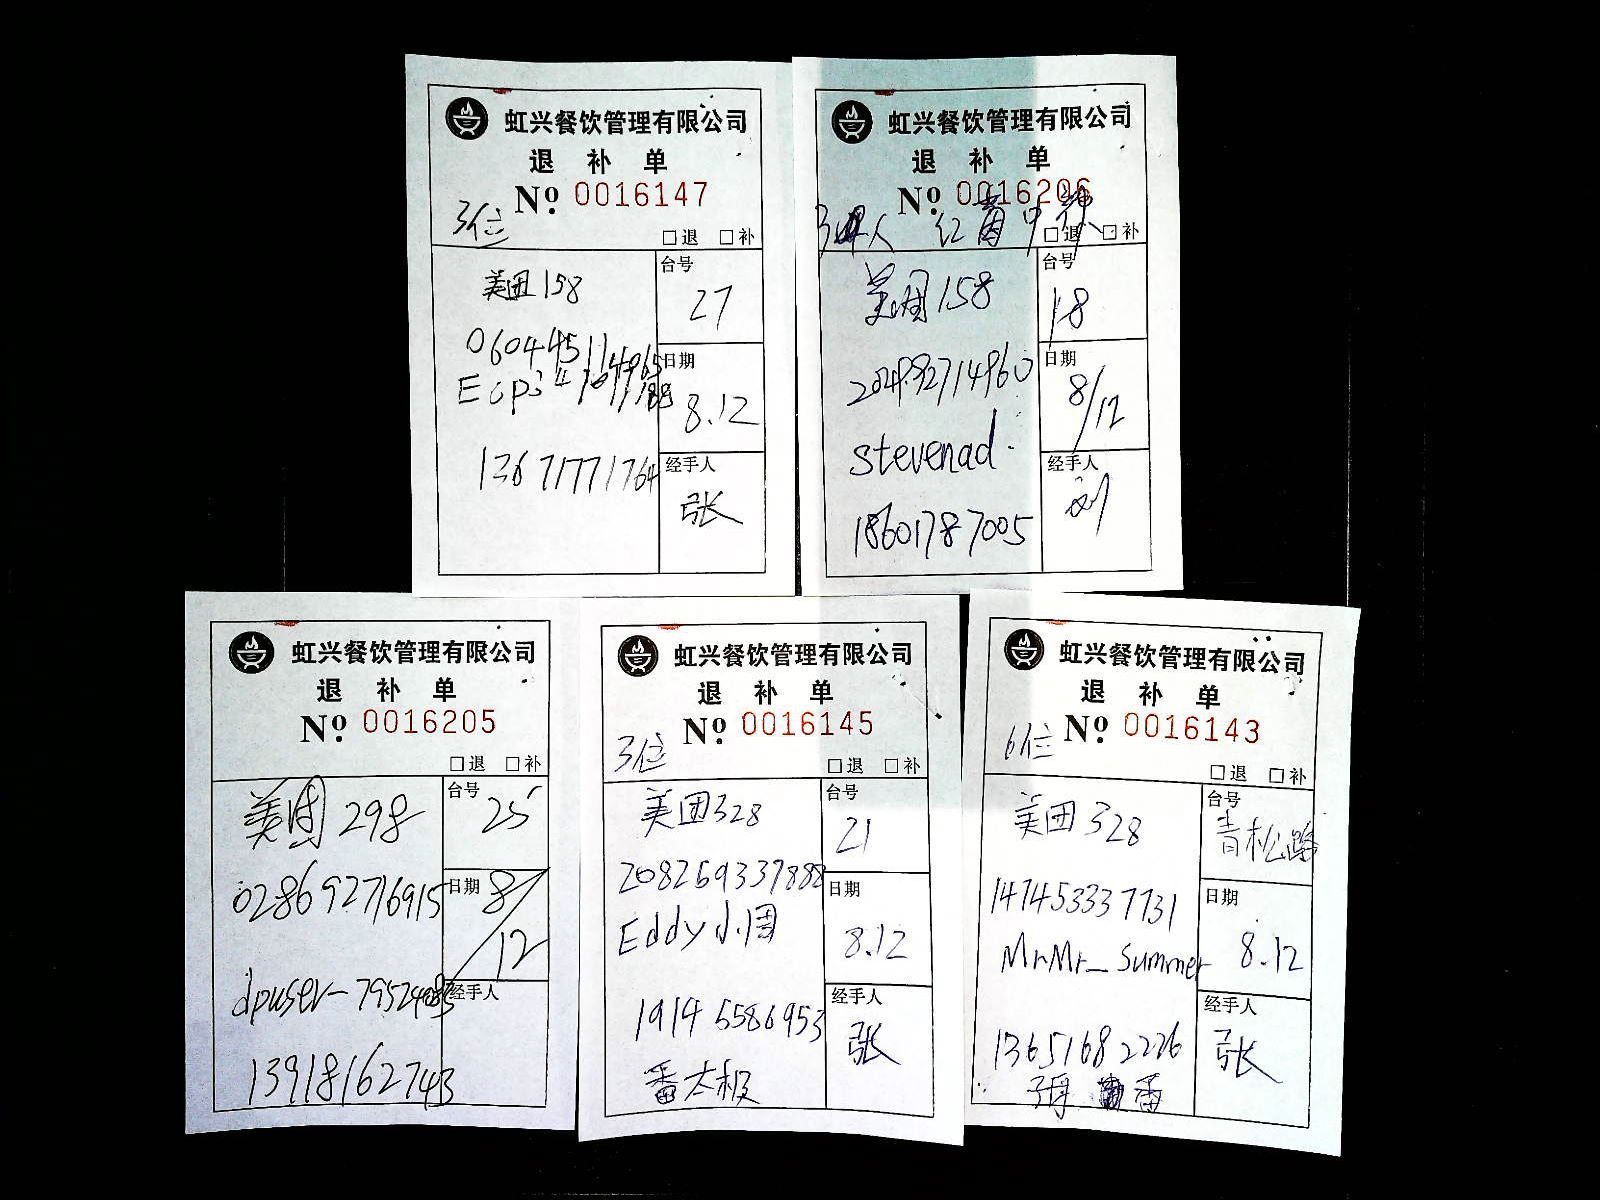 虹兴餐饮管理有限公司
退 补 单
Nº 0016147
3位
□退 □补
美团158
台号
27
日期
8.12
13671771764
经手人
张
虹兴餐饮管理有限公司
退 补 单
Nº 0016206
人 红 中 辣
□退 □补
美团158
台号
18
204982714960
日期
8/12
stevenad.
18601787005
经手人
刘
虹兴餐饮管理有限公司
退 补 单
Nº 0016205
□退 □补
美团 298
台号
25
028692716915
日期
8/12
经手人
13918162743
虹兴餐饮管理有限公司
退 补 单
Nº 0016145
3位
□退 □补
美团328
台号
21
208269337888
日期
8.12
Eddy小周
19146586953
经手人
张
番太极
虹兴餐饮管理有限公司
退 补 单
Nº 0016143
6位
□退 □补
美团 328
台号
青松路
147453337731
日期
8.12
MrMr_Summer
13651682226
经手人
张
番